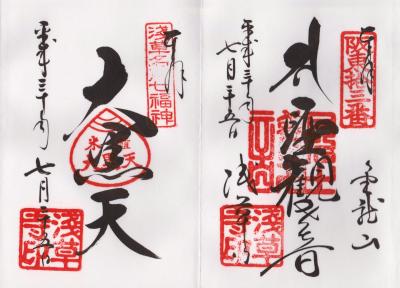 奉拝
坂東十三番
聖観世音
金龍山
浅草寺
平成三十年
七月二十五日
浅草寺印
奉拝
浅草名所七福神
大黒天
平成三十年
七月二十五日
浅草寺印